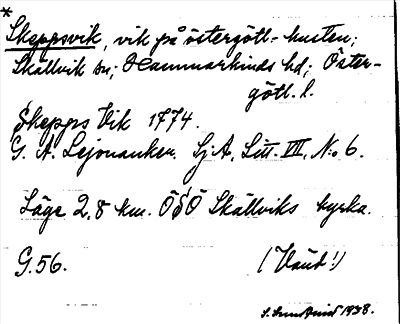 *
Skeppsvik, vik på östergötl.-kusten;
Skällvik sn; Hammarkinds hd; Öster-
götl. l.
Skepps Vik 1774.
G. A. Lejonanker. Sj.A. Litt. III, No 6.
Läge 2,8 km. ÖSÖ Skällviks kyrka.
G.56. (Vaub!)
1938.